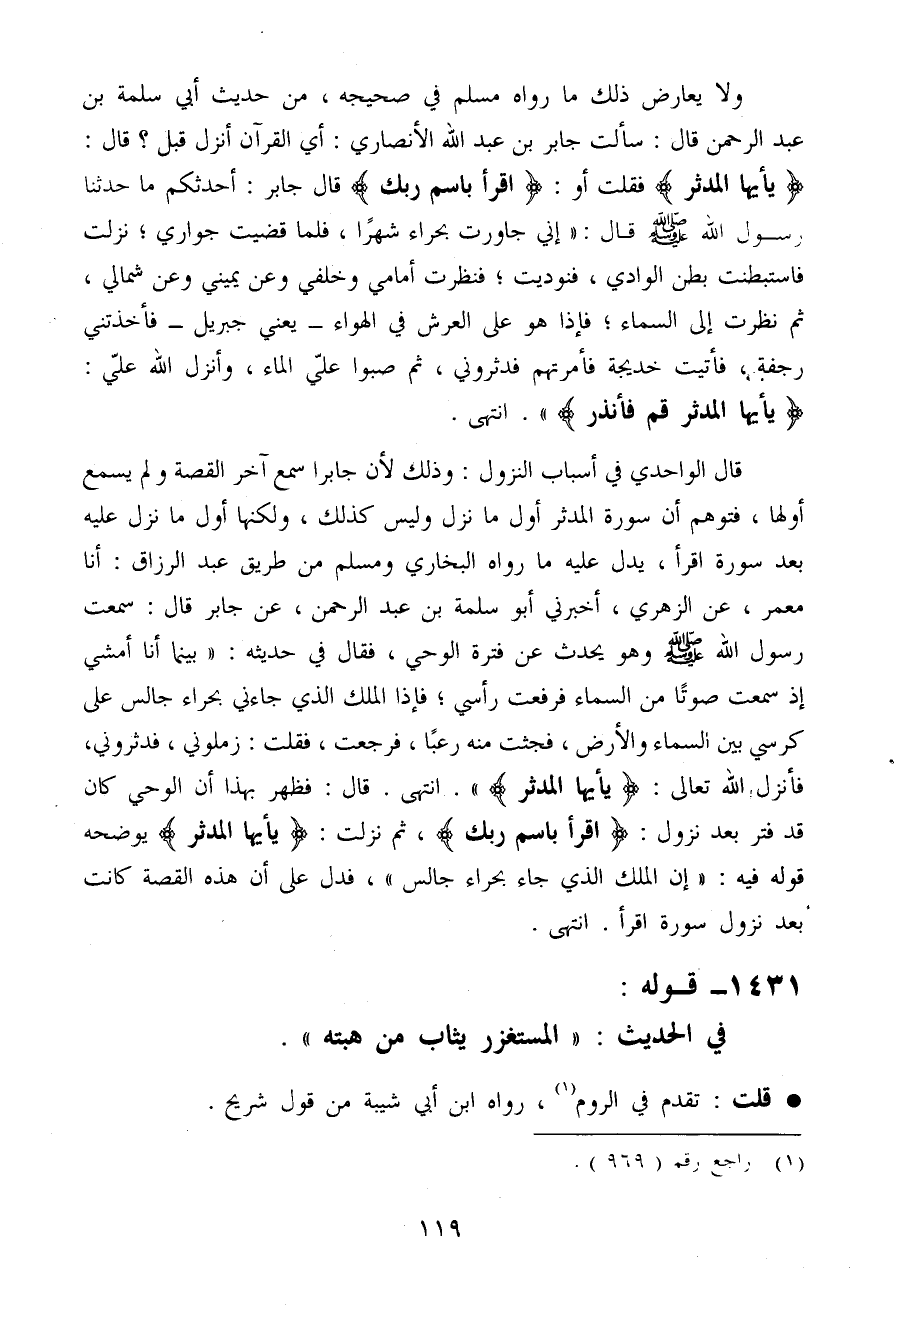 ولا يعارض ذلك ما رواه مسلم في صحيحه ، من حديث أبي سلمة بن
عبد الرحمن قال : سألت جابر بن عبد الله الأنصاري : أي القرآن أنزل قبل ؟ قال :
﴿ يأيها المدثر ﴾ فقلت أو : ﴿ اقرأ باسم ربك ﴾ قال جابر : أحدثكم ما حدثنا
رسول الله ﷺ قال : « إني جاورت بحراء شهرًا ، فلما قضيت جواري ؛ نزلت
فاستبطنت بطن الوادي ، فنوديت ؛ فنظرت أمامي وخلفي وعن يميني وعن شمالي ،
ثم نظرت إلى السماء ؛ فإذا هو على العرش في الهواء ــ يعني جبريل ــ فأخذتني
رجفة ، فأتيت خديجة فأمرتهم فدثروني ، ثم صبوا عليّ الماء ، وأنزل الله عليّ :
﴿ يأيها المدثر قم فأنذر ﴾ » . انتهى .
قال الواحدي في أسباب النزول : وذلك لأن جابرا سمع آخر القصة ولم يسمع
أولها ، فتوهم أن سورة المدثر أول ما نزل وليس كذلك ، ولكنها أول ما نزل عليه
بعد سورة اقرأ ، يدل عليه ما رواه البخاري ومسلم من طريق عبد الرزاق : أنا
معمر ، عن الزهري ، أخبرني أبو سلمة بن عبد الرحمن ، عن جابر قال : سمعت
رسول الله ﷺ وهو يحدث عن فترة الوحي ، فقال في حديثه : « بينما أنا أمشي
إذ سمعت صوتًا من السماء فرفعت رأسي ؛ فإذا الملك الذي جاءني بحراء جالس على
كرسي بين السماء والأرض ، فجثت منه رعبًا ، فرجعت ، فقلت : زملوني ، فدثروني،
فأنزل الله تعالى : ﴿ يأيها المدثر ﴾ » . انتهى . قال : فظهر بهذا أن الوحي كان
قد فتر بعد نزول : ﴿ اقرأ باسم ربك ﴾ ، ثم نزلت : ﴿ يأيها المدثر ﴾ يوضحه
قوله فيه : « إن الملك الذي جاء بحراء جالس » ، فدل على أن هذه القصة كانت
بعد نزول سورة اقرأ . انتهى .
١٤٣١ــ قــوله :
في الحديث : « المستغزر يثاب من هبته » .
● قلت : تقدم في الروم(١) ، رواه ابن أبي شيبة من قول شريح .
(١) راجع رقم ( ٩٦٩ ) .
١١٩